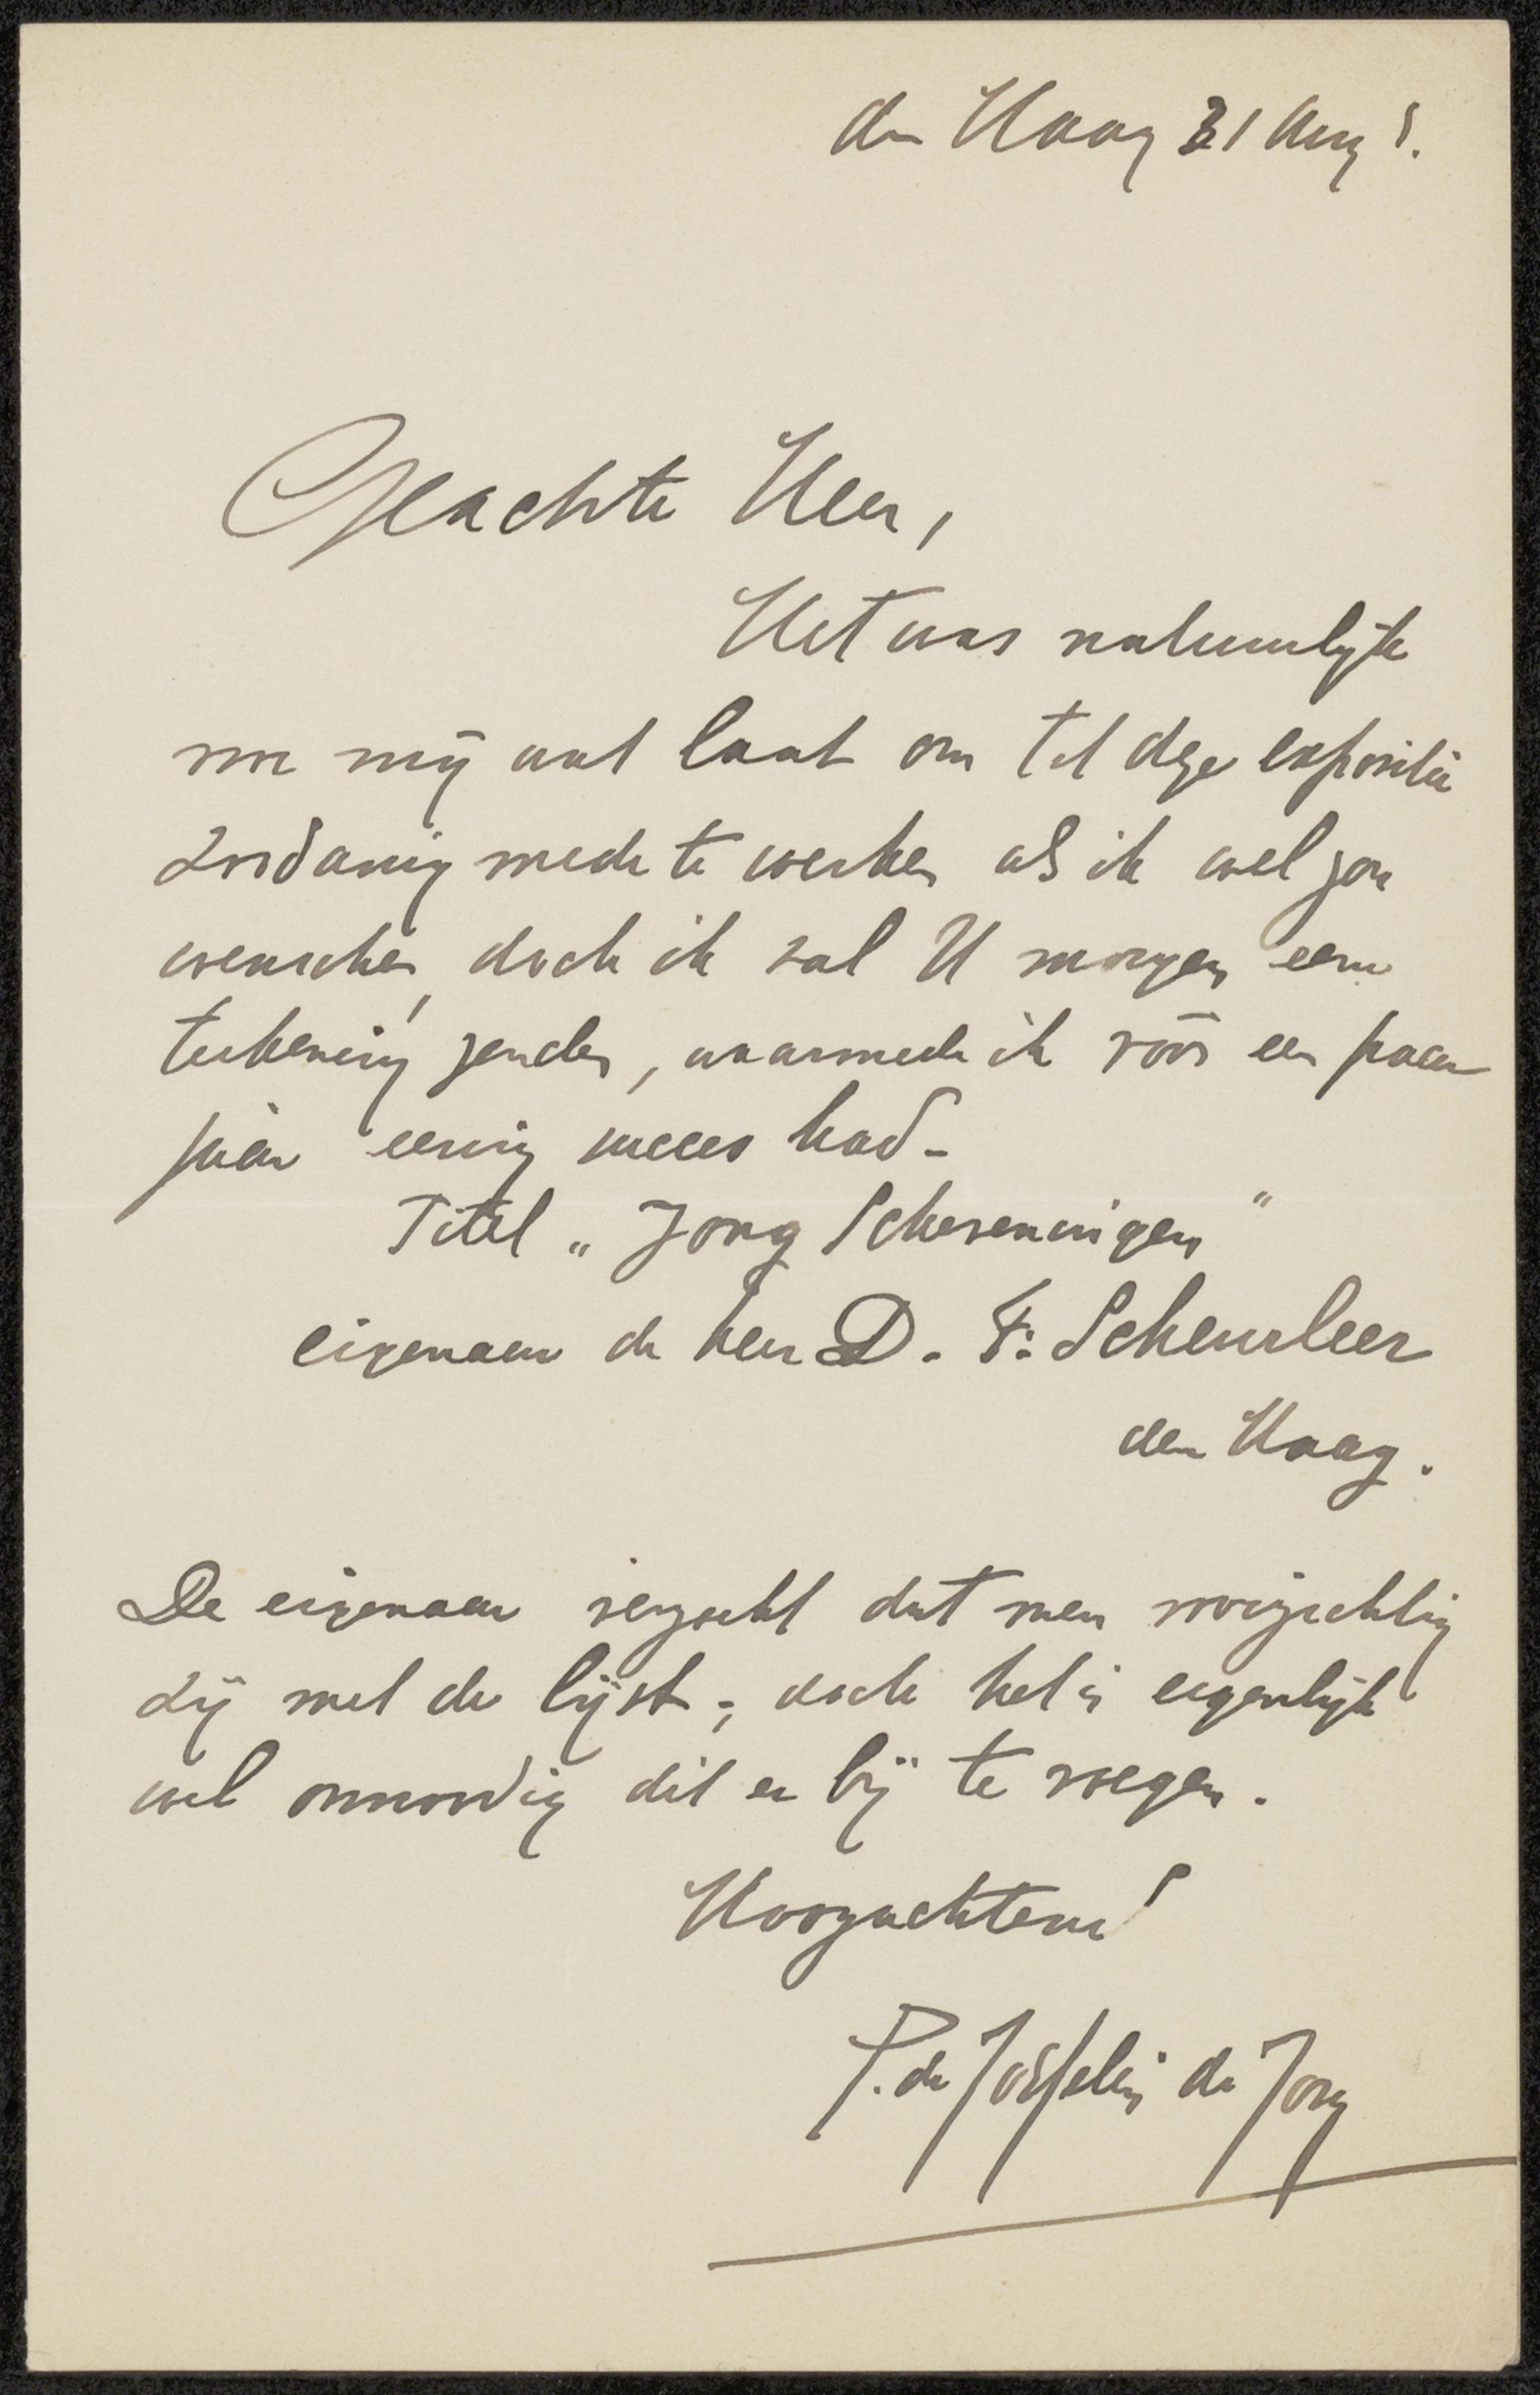 den Haag 31 Aug s.
Geachte Heer,
Het was natuurlijk
voor mij wat laat om tot deze expositie
zoodanig mede te werken als ik wel zou
wenschen, doch ik zal U morgen eene
teekening zenden, waarmede ik vóór een paar
jaar eenig succes had.
Titel „Jong Scheveningen"
eigenaar de heer D. F. Scheurleer
den Haag.
De eigenaar verzocht dat men voorzichtig
zij met de lijst; doch het is eigenlijk
wel onnoodig dit er bij te voegen.
Hoogachtend
P. de Josselin de Jong